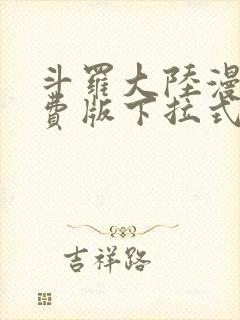 斗羅大陸漫
費版下拉式
吉祥路